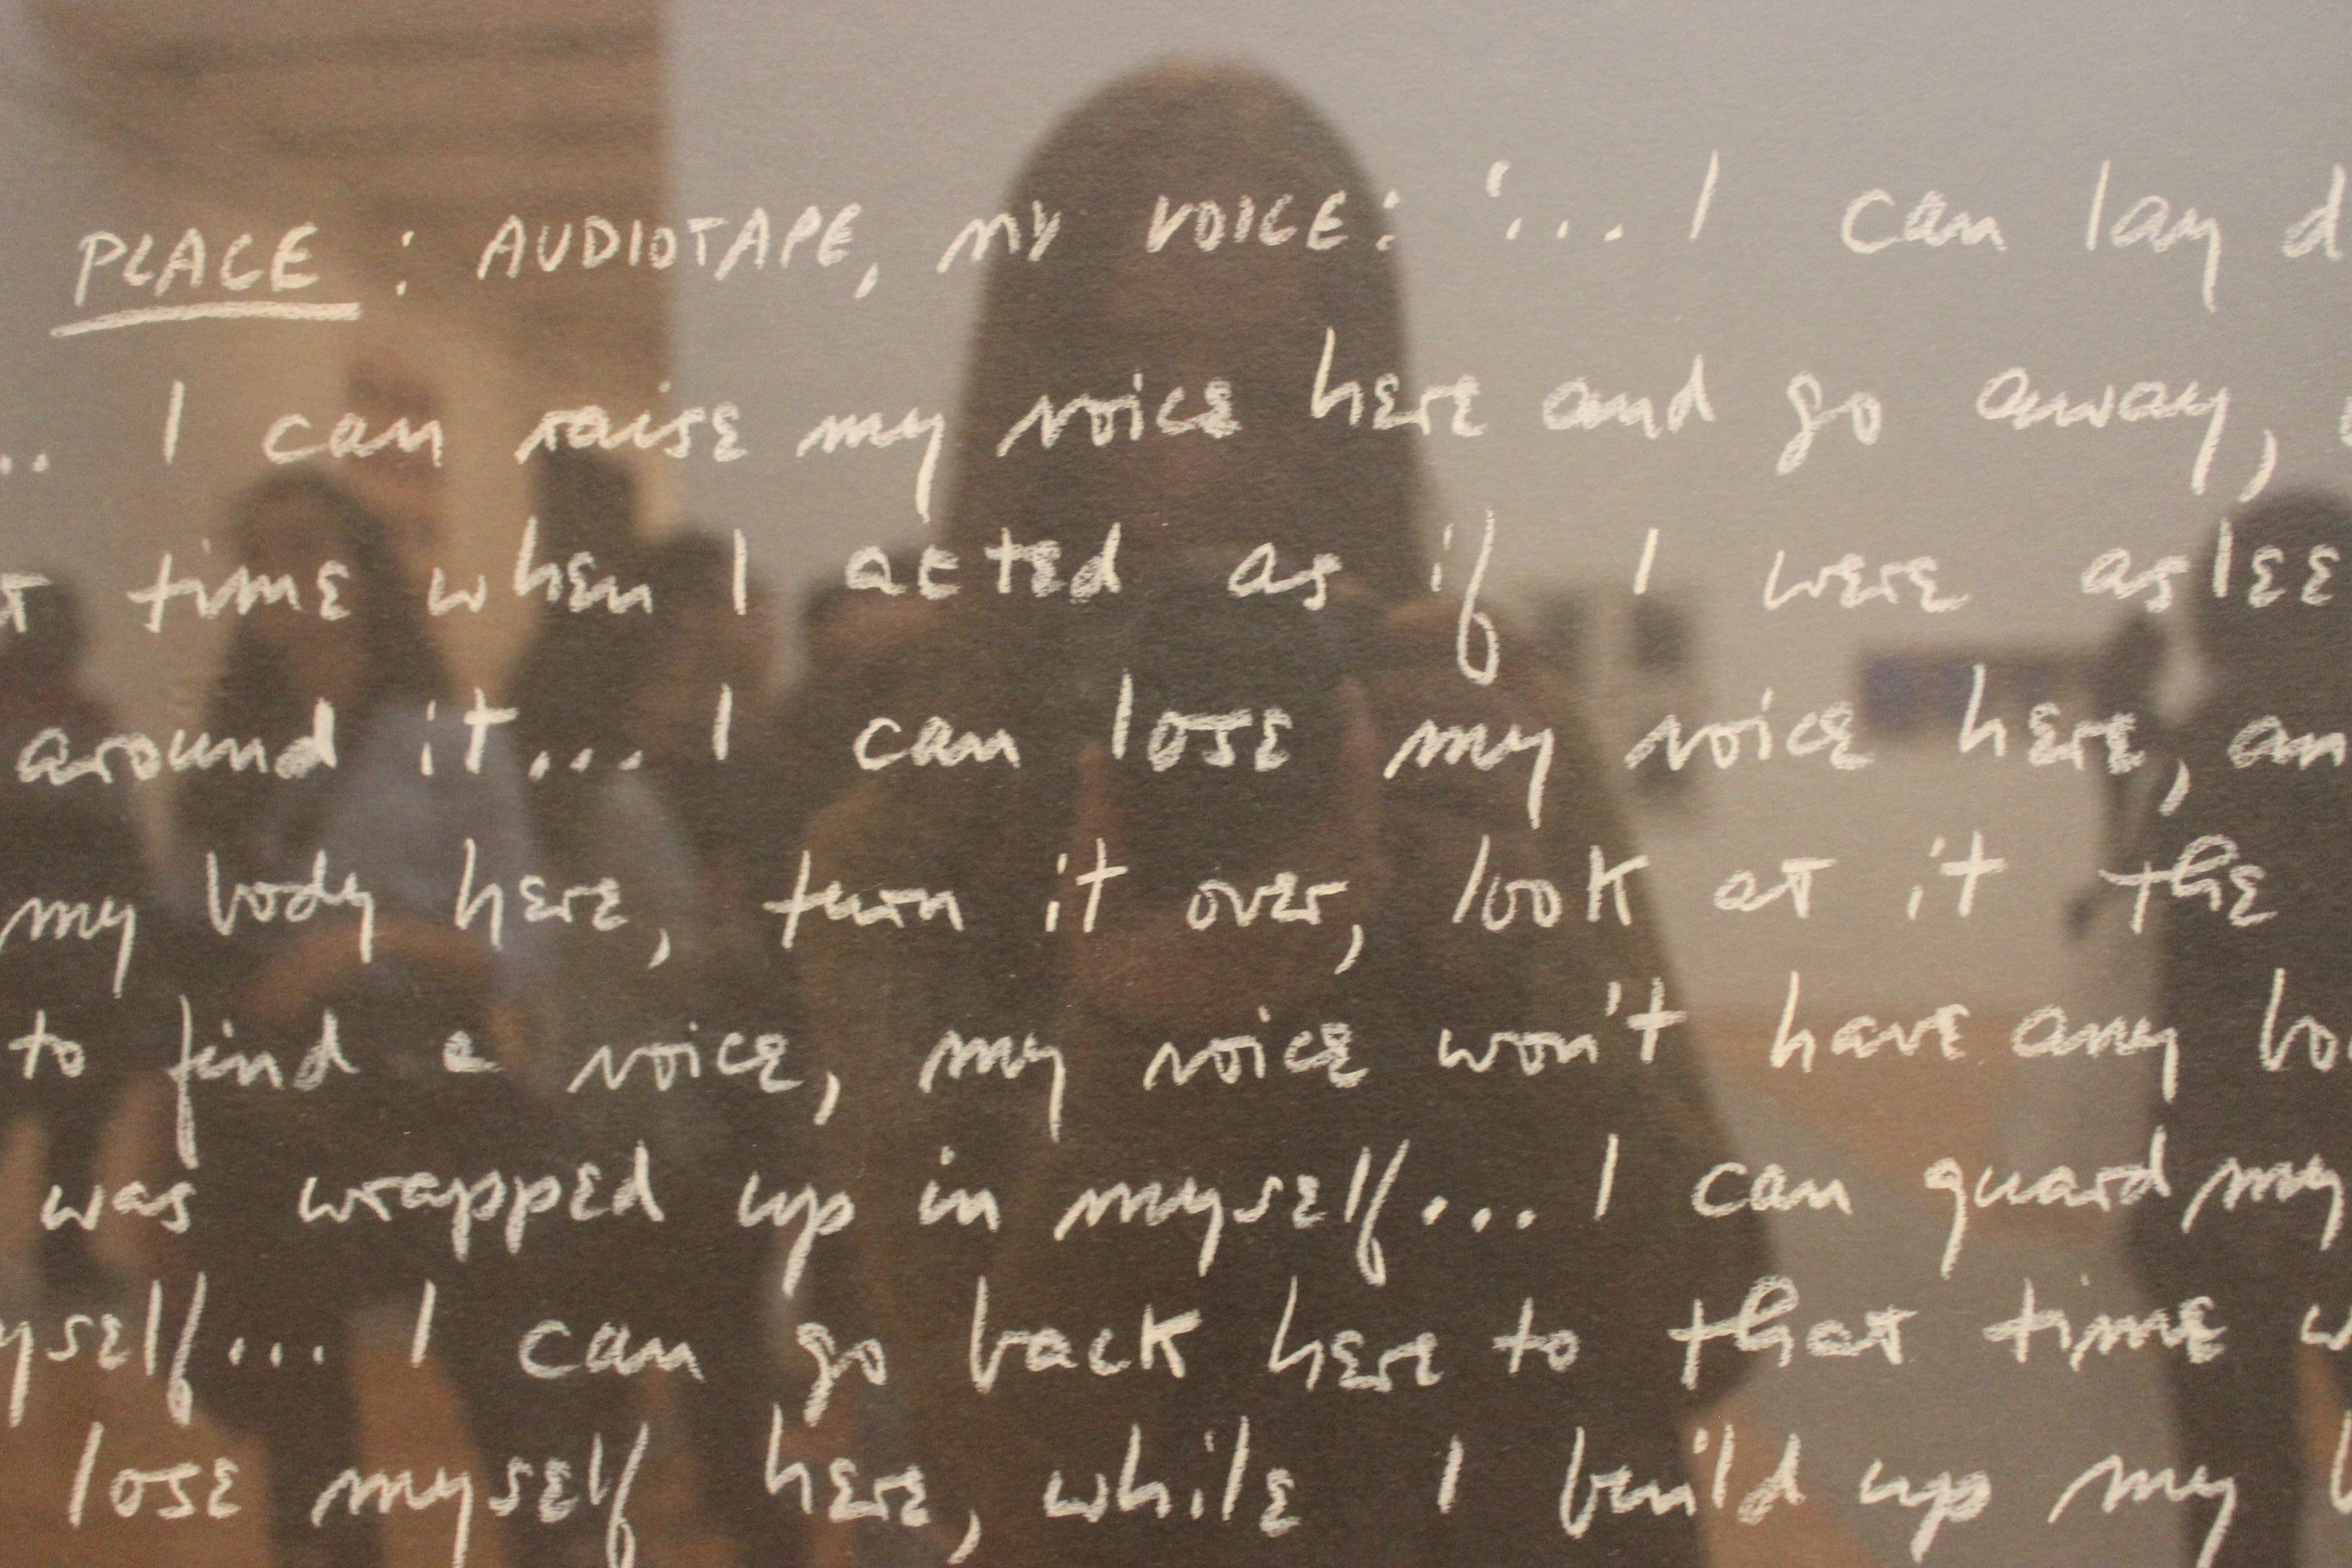 PLACE : AUDIOTAPE, MY VOICE: '... I can lay
.. I can raise my voice here and go away,
time when I acted as if I were aslee
around it... I can lose my voice here, an
my body here, turn it over, look at it the
to find a voice, my voice won't have any bo
was wrapped up in myself... I can guard my
yself... I can go back here to that time w
lose myself here, while I build up my b